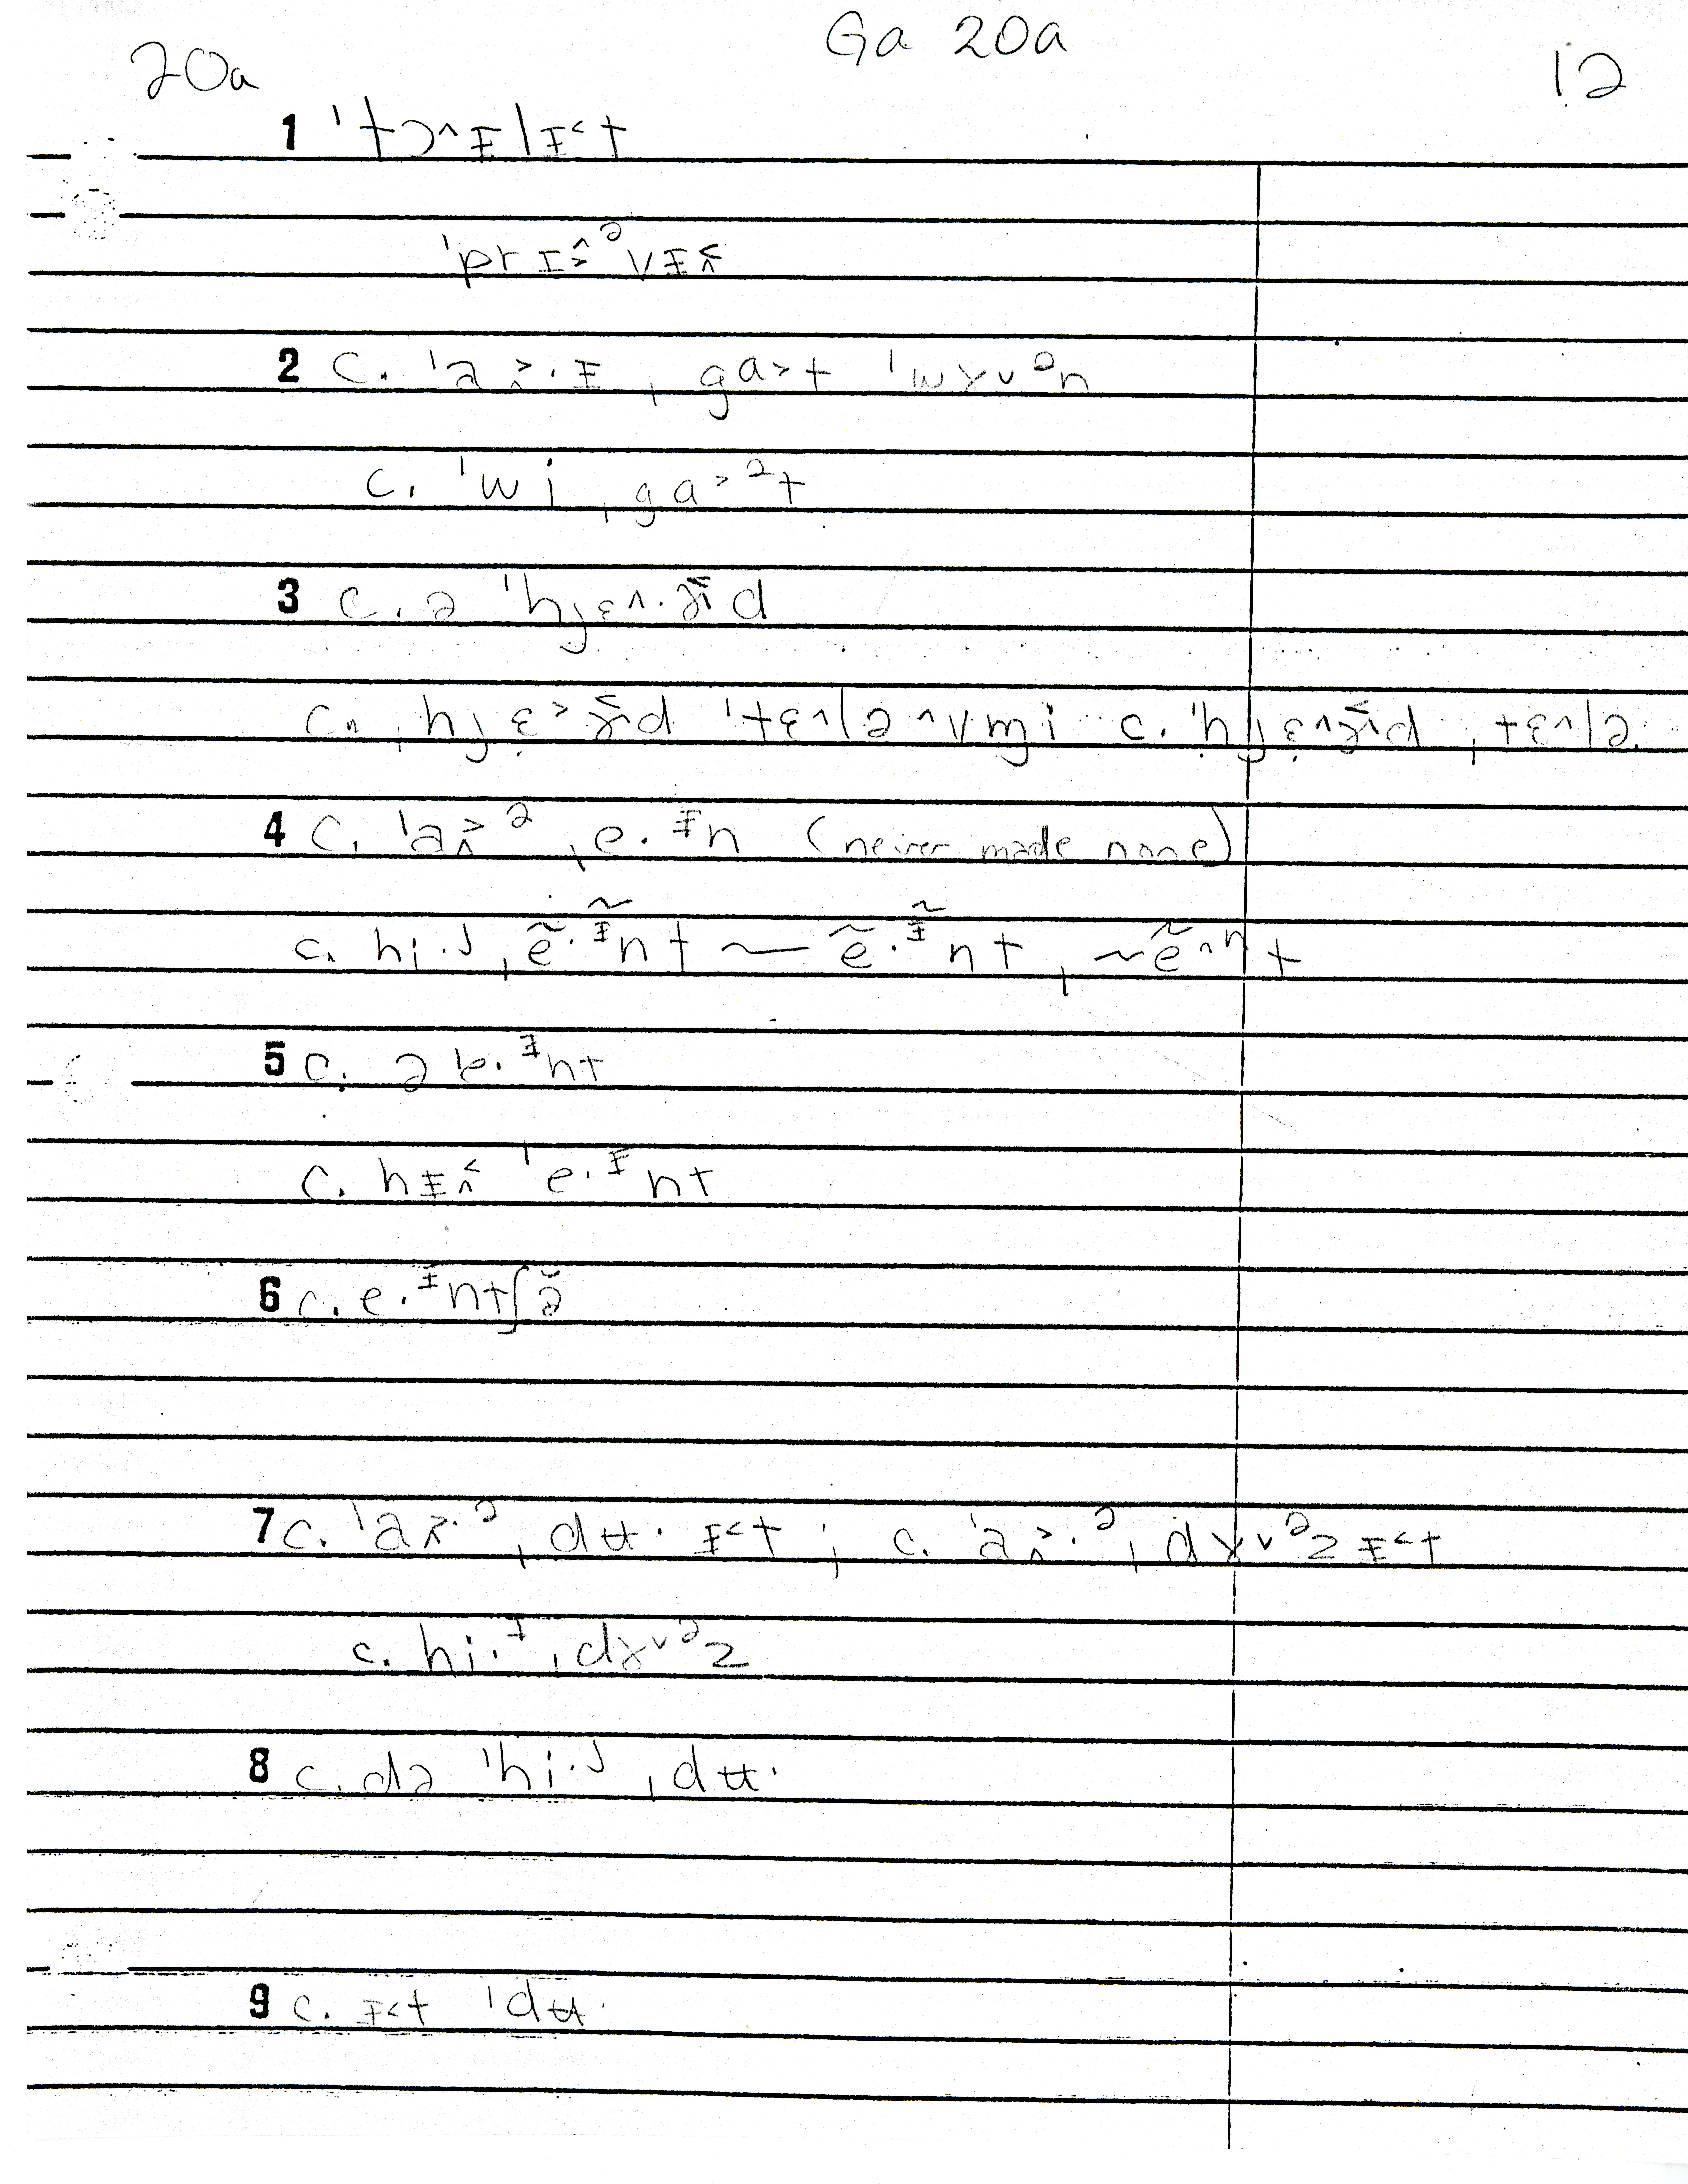 Ga 20a
20a
12
1 ˈtɔ^ɪ̵lɪ̵˂t
ˈprɪ˃̭ᵊvɪ̵˂̭
2 c. ˈa˃̭·ɪ̵ ˌga˃t ˈwɤ˅ᵊn
c. ˈwi ˌga˃ᵊt
3 c. ə ˈhjɛ^·d
c. ˌhjɛ˃d ˈtɛ^lə ^˅mi c. ˈhjɛ^d ˌtɛ^lə
4 c. ˈa˃̭ᵊ ˌe·ᶤn (never made none)
c. hi·ᴶ ˌẽ·ᶤ̃nt ~ ẽ·ᶤ̃nt, ~ẽ^ⁿt
5 c. ə ˈe·ᶤnt
c. hɪ̵˂̭ ˈe·ᶤnt
6 c. e·ᶤntʃə̆
7 c. ˈa˃̭·ᵊ ˌdʉ· ɪ̵˂t ; c. ˈa˃̭·ᵊ ˌdɤ˅ᵊz ɪ̵˂t
c. hi·ᶤ ˌdɤ˅ᵊz
8 c. də ˈhi·ᴶ ˌdʉ·
9 c. ɪ̵˂t ˈdʉ·